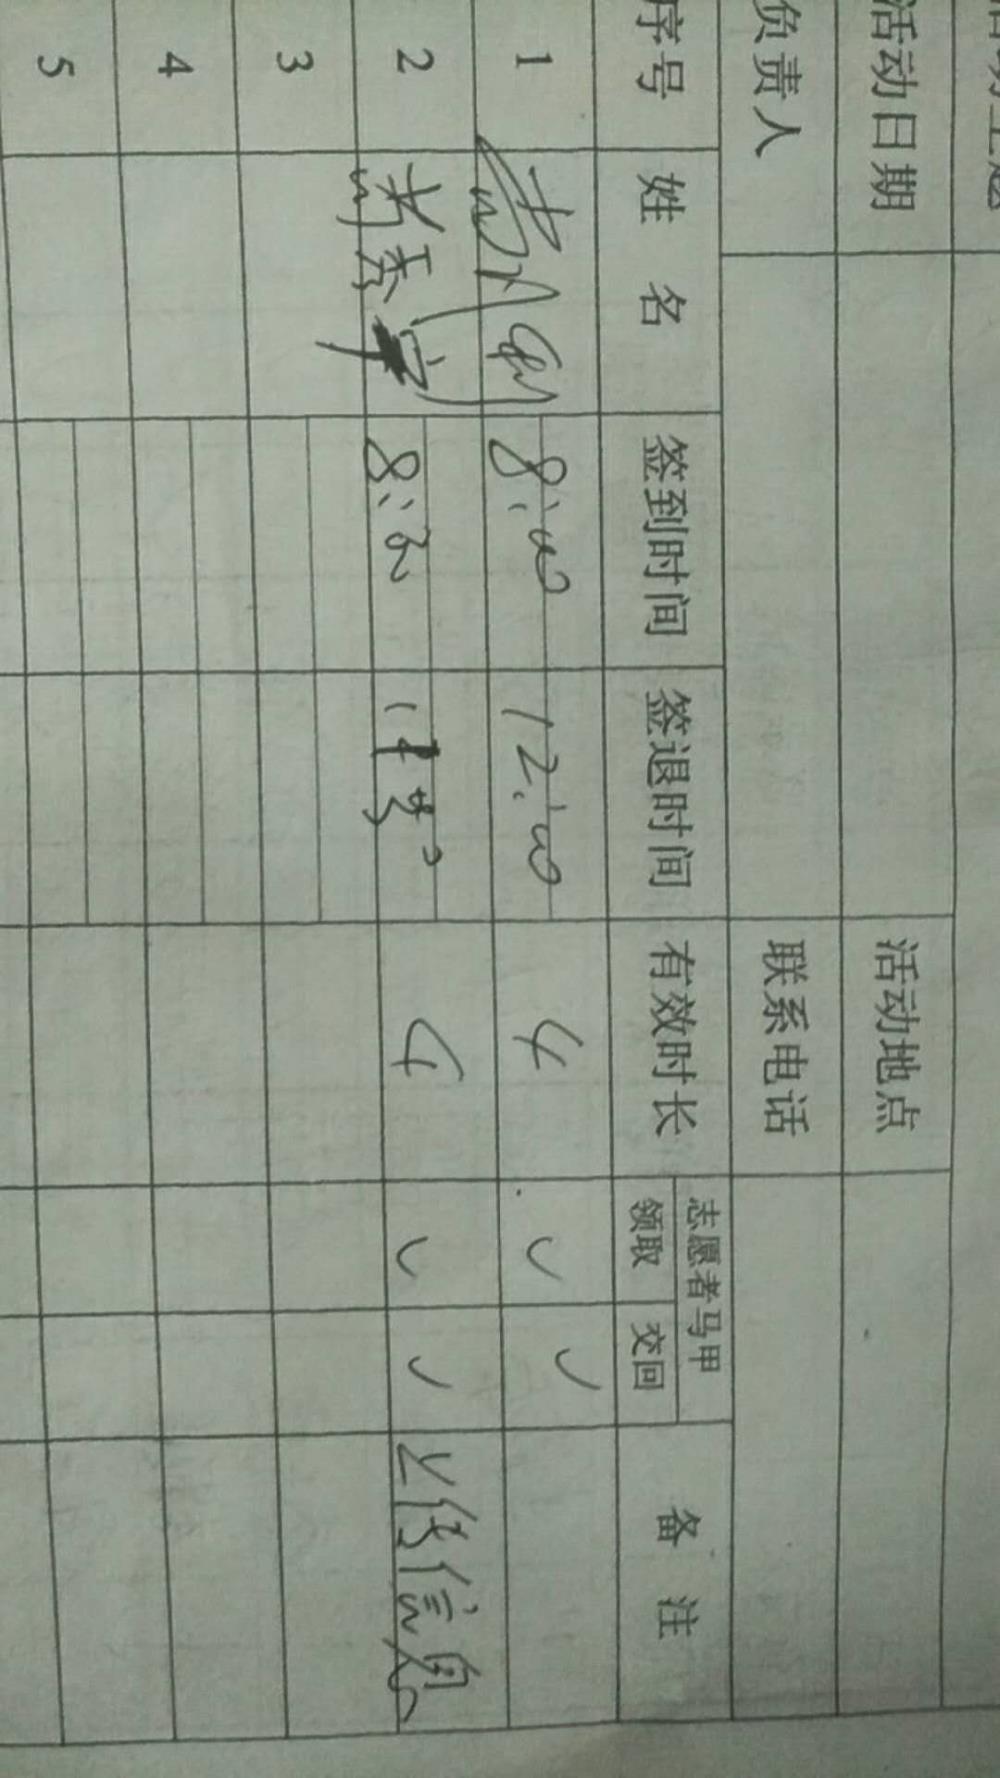 活动日期 活动地点
负责人 联系电话
序号 姓名 签到时间 签退时间 有效时长 志愿者马甲 备注
领取 交回
1 8:00 12:00 4 ✓ ✓
2 8:00 4 ✓ ✓ 上传信息
3
4
5